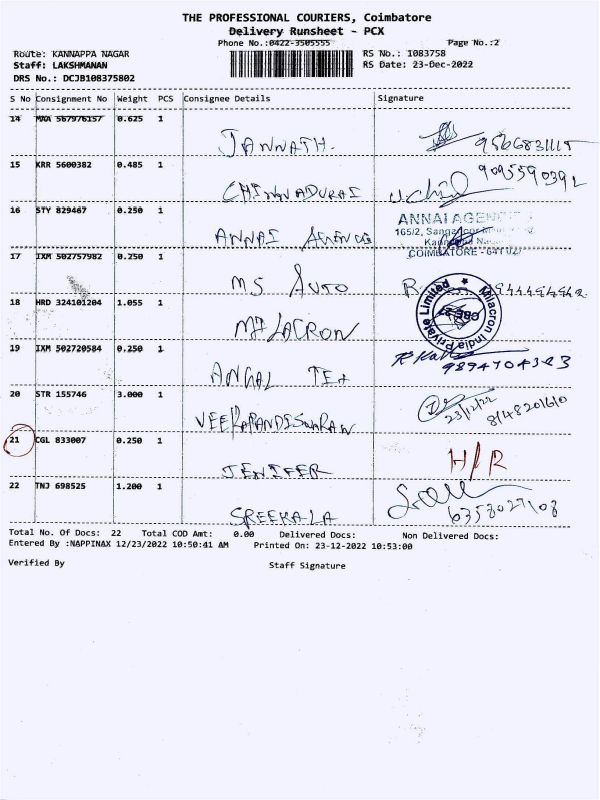 THE PROFESSIONAL COURIERS, Coimbatore
Delivery Runsheet - PCX
Phone No.:0422-3505555 Page No.:2
Route: KANNAPPA NAGAR RS No.: 1083758
Staff: LAKSHMANAN RS Date: 23-Dec-2022
DRS No.: DCJB108375802
S No Consignment No Weight PCS Consignee Details Signature
14 MAA 567976157 0.625 1
JANNATH. 9566831115
15 KRR 5600382 0.485 1
CHINNADURAI 9095590392
16 STY 829467 0.250 1
ANNAI AGENCIE ANNAI AGEN
165/2,
COIMBATORE - 641 027
17 IXM 502757982 0.250 1
MS AUTO R.
18 HRD 324101204 1.055 1
MILACRON Milacron India Private Limited
CBE-27
19 IXM 502720584 0.250 1
ANGAL TEX 9894704383
20 STR 155746 3.000 1
VEERAPANDISWARAN 23/12/22 8148201610
21 CGL 833007 0.250 1
JENIFER H/R
22 TNJ 698525 1.200 1
SREEKALA 6358027108
Total No. Of Docs: 22 Total COD Amt: 0.00 Delivered Docs: Non Delivered Docs:
Entered By :NAPPINAX 12/23/2022 10:50:41 AM Printed On: 23-12-2022 10:53:00
Verified By Staff Signature